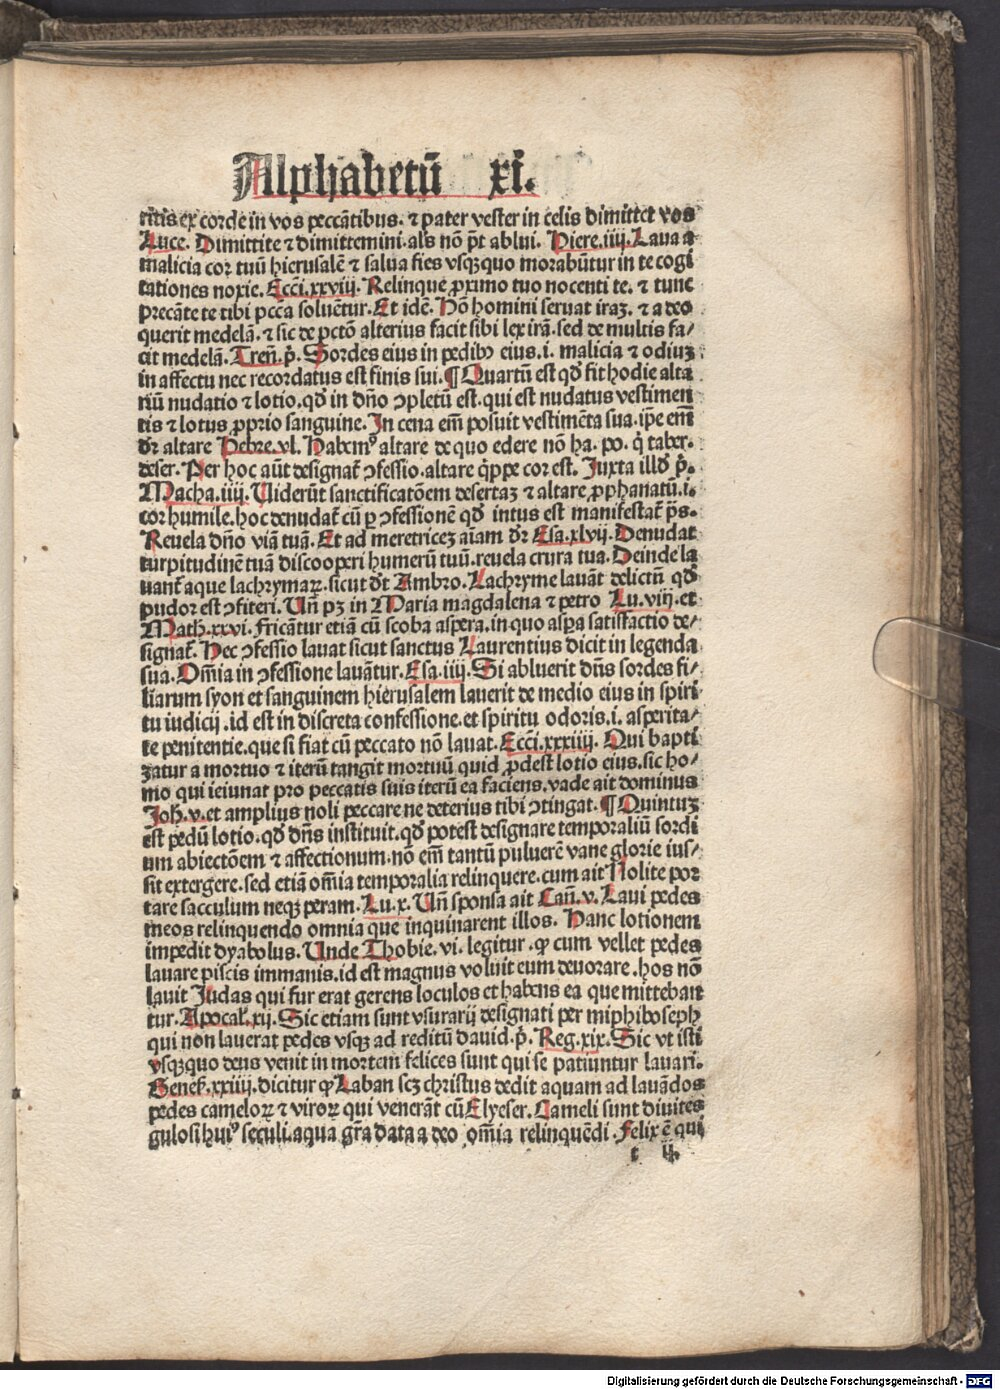 Alphabetū xi.
ritis ex corde in vos peccātibus. ⁊ pater vester in celis dimittet vos
Luce. Dimittite ⁊ dimittemini. als nō pt̄ ablui. Hiere. iiij. Laua a
malicia cor tuū hierusalē ⁊ salua fies vsqꝫquo morabūtur in te cogi
tationes noxie. Ecci. xxviij. Relinque ꝓximo tuo nocenti te. ⁊ tunc
precāte te tibi pctā soluētur. Et idē. Hō homini seruat iraꝫ. ⁊ a deo
querit medelā. ⁊ sic de pctō alterius facit sibi lex irā. sed de multis fa⸗
cit medelā. Treñ. p̄. Sordes eius in pedibꝰ eius. i. malicia ⁊ odiuꝫ
in affectu nec recordatus est finis sui. ¶ Quartū est qd̄ fit hodie alta
riū nudatio ⁊ lotio. qd̄ in dño ꝯpletū est. qui est nudatus vestimen
tis ⁊ lotus ꝓprio sanguine. In cena em̄ posuit vestimēta sua. ip̄e em̄
dr̄ altare Hebre. vl. Habemꝰ altare de quo edere nō ha. po. q̇ taber⸗
deser. Per hoc aūt designat̄ ꝯfessio. altare q̇ppe cor est. Juxta illd̄ p̄.
Macha. iiij. Uiderūt sanctificatōem desertaꝫ ⁊ altare ꝓphanatū. i.
cor humile. hoc denudat̄ cū ꝑ ꝯfessionē qd̄ intus est manifestat̄ p̄s.
Reuela dño viā tuā. Et ad meretriceꝫ aīam dr̄ Esa. xlvij. Denudat
turpitudinē tuā discooperi humerū tuū. reuela crura tua. Deinde la
uant̄ aque lachrymaꝝ. sicut dt̄ Ambro. Lachryme lauāt delictū qd̄
pudor est ꝯfiteri. Uñ pꝫ in Maria magdalena ⁊ petro Lu. viij. et
Math. xxvi. fricātur etiā cū scoba aspera. in quo aspa satisfactio de⸗
signat̄. Hec ꝯfessio lauat sicut sanctus Laurentius dicit in legenda
sua. Om̄ia in ꝯfessione lauātur. Esa. iiij. Si abluerit dn̄s sordes fi⸗
liarum syon et sanguinem hierusalem lauerit de medio eius in spiri⸗
tu iudicij. id est in discreta confessione. et spiritu odoris. i. asperita⸗
te penitentie. que si fiat cū peccato nō lauat. Ecci. xxxiiij. Qui bapti
zatur a mortuo ⁊ iterū tangit mortuū quid ꝓdest lotio eius. sic ho⸗
mo qui ieiunat pro peccatis suis iterū ea faciens. vade ait dominus
Joh. v. et amplius noli peccare ne deterius tibi ꝯtingat. ¶ Quintuꝫ
est pedū lotio. qd̄ dn̄s instituit. qd̄ potest designare temporaliū sordi
um abiectōem ⁊ affectionum. nō em̄ tantū puluerē vane glorie ius⸗
sit extergere. sed etiā om̄ia temporalia relinquere. cum ait Nolite por
tare sacculum neqꝫ peram. Lu. x. Uñ sponsa ait Cañ. v. Laui pedes
meos relinquendo omnia que inquinarent illos. Hanc lotionem
impedit dyabolus. Unde Thobie. vi. legitur. ꝙ cum vellet pedes
lauare piscis immanis. id est magnus voluit eum deuorare. hos nō
lauit Judas qui fur erat gerens loculos et habens ea que mitteban
tur. Apocal̄. xij. Sic etiam sunt vsurarij designati per miphiboseph
qui non lauerat pedes vsqꝫ ad reditū dauid. p̄. Reg. xix. Sic vt isti
vsqꝫquo deus venit in mortem felices sunt qui se patiuntur lauari.
Genes̄. xxiiij. dicitur ꝙ Laban scꝫ christus dedit aquam ad lauādos
pedes cameloꝝ ⁊ viroꝝ qui venerāt cū Elyeser. Cameli sunt diuites
gulosi huiꝰ seculi. aqua gr̄a data a deo om̄ia relinquēdi. Felix ē qui
t ij.
Digitalisierung gefördert durch die Deutsche Forschungsgemeinschaft - DFG